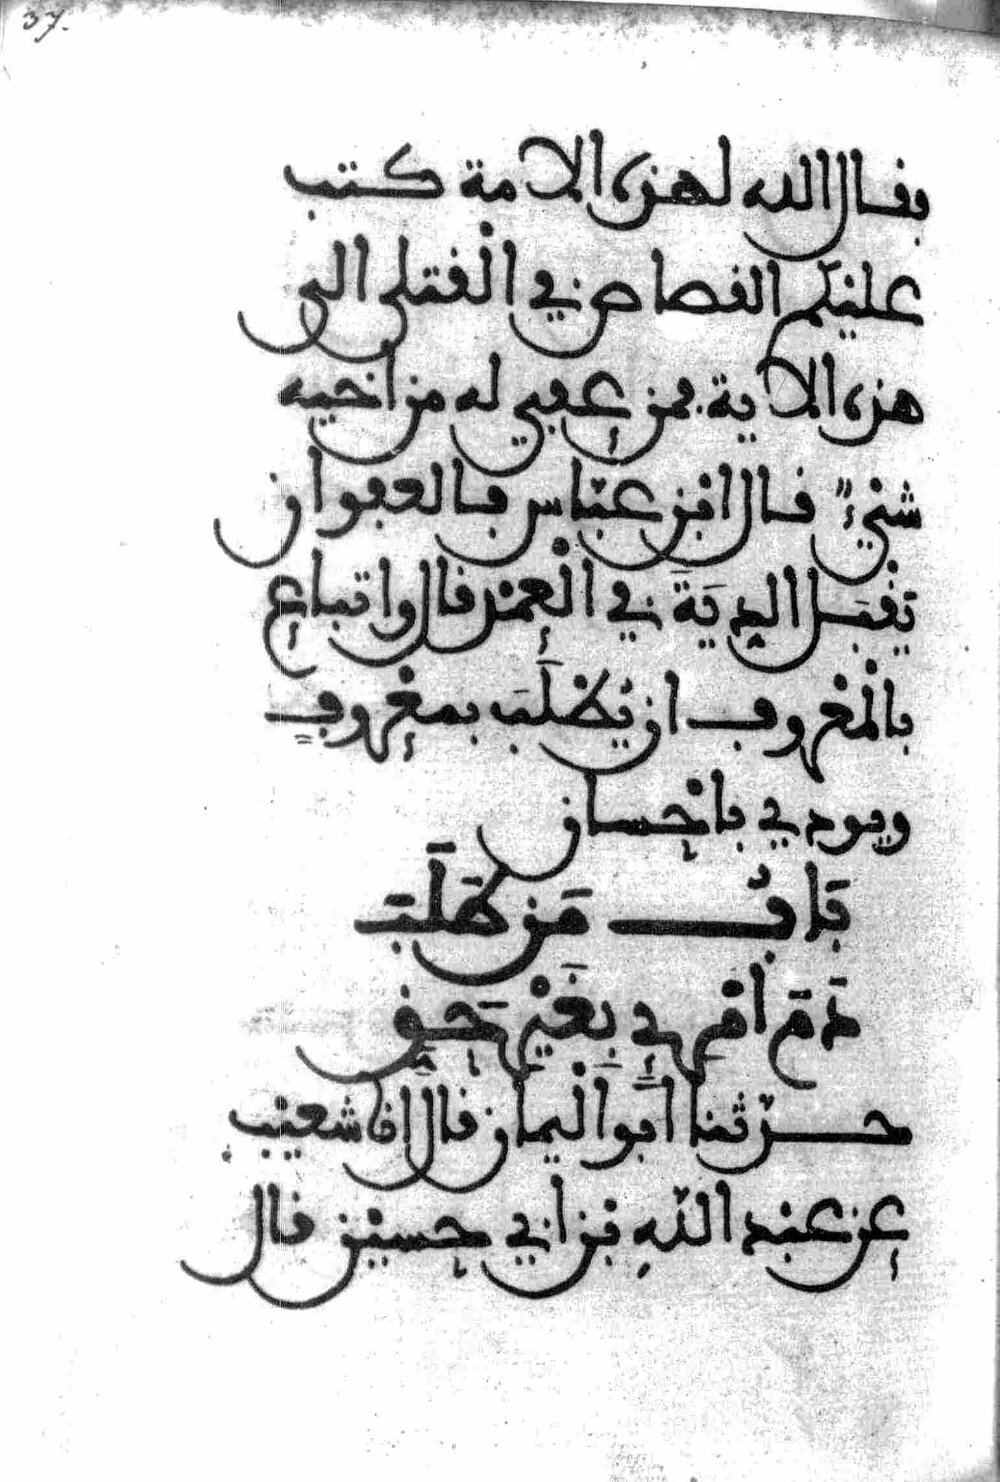 37.
فقال الله لهذه الامة كتب
عليكم القصاص في القتلى الى
هذه الاية فمن عفي له من اخيه
شيء قال ابن عباس فالعفو ان
يقبل الدية في العمد قال واتباع
بالمعروف ان يطلب بمعروف
ويودي باحسان
باب من طلب
دم امرئ بغير حق
حدثنا ابو اليمان قال انا شعيب
عن عبد الله بن ابي حسين قال